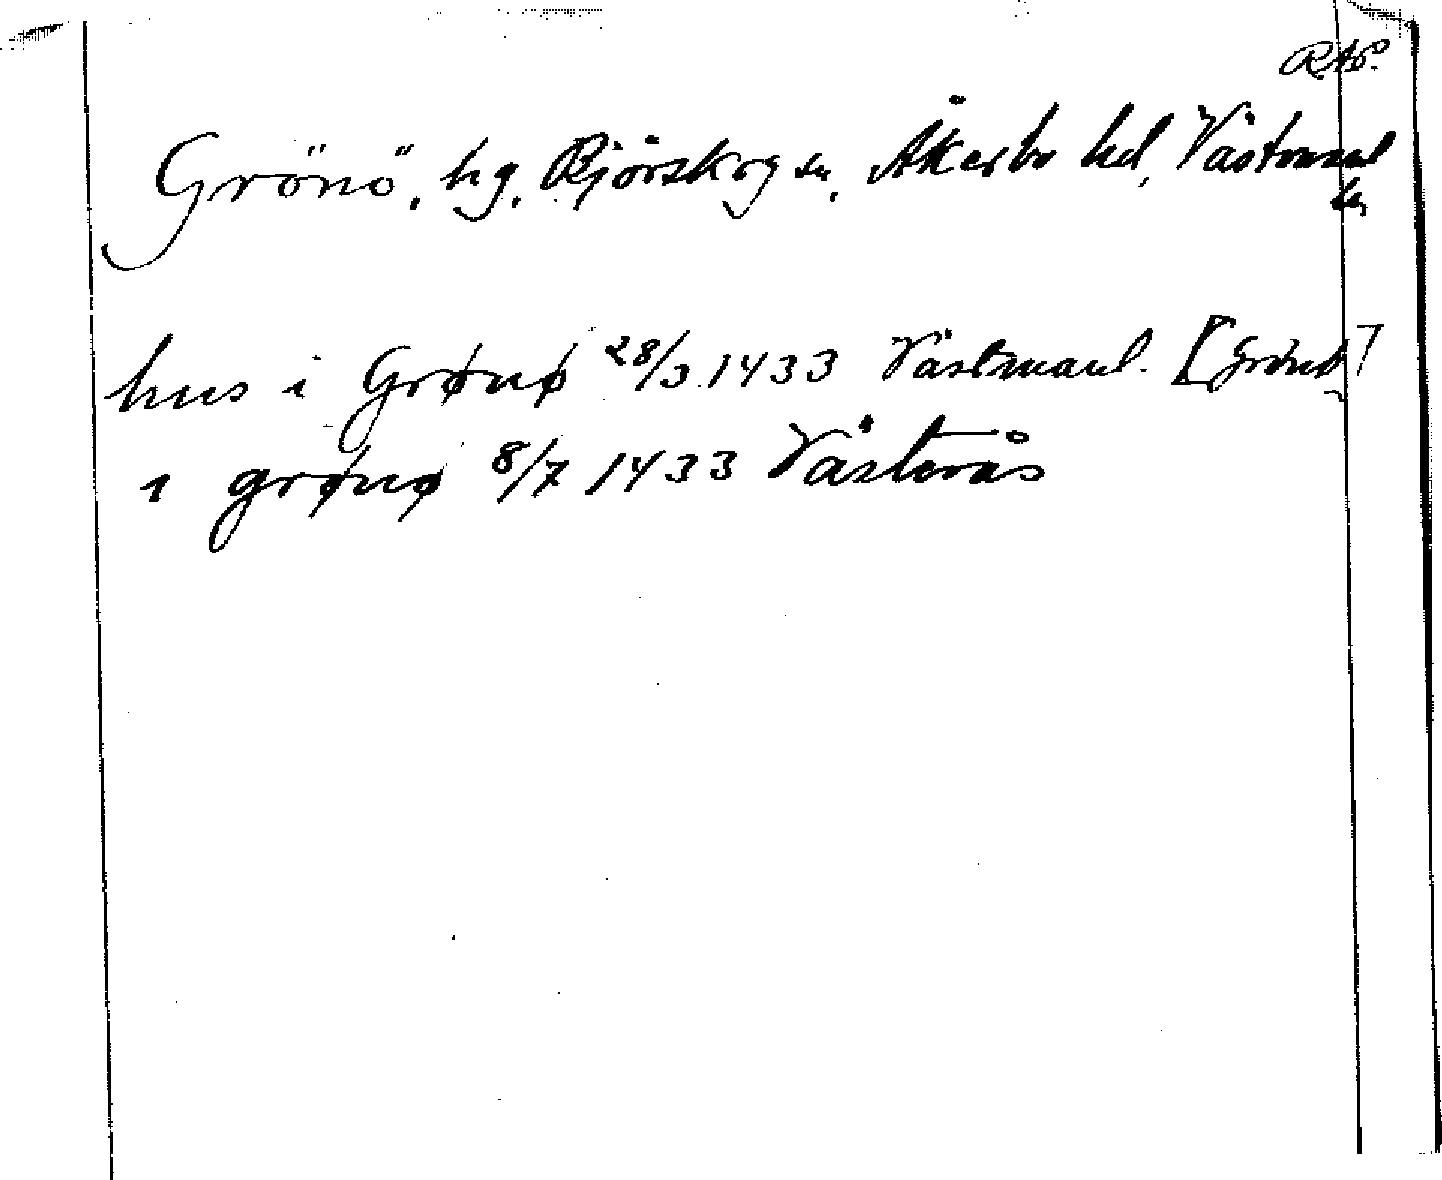 RAP.
Grönö, hg, Björskog sn, Åkerbo hd, Västmanl
ln
hus i Grønø 28/3 1433 Västmanl. [Grönö]
i grønø 8/7 1433 Västerås